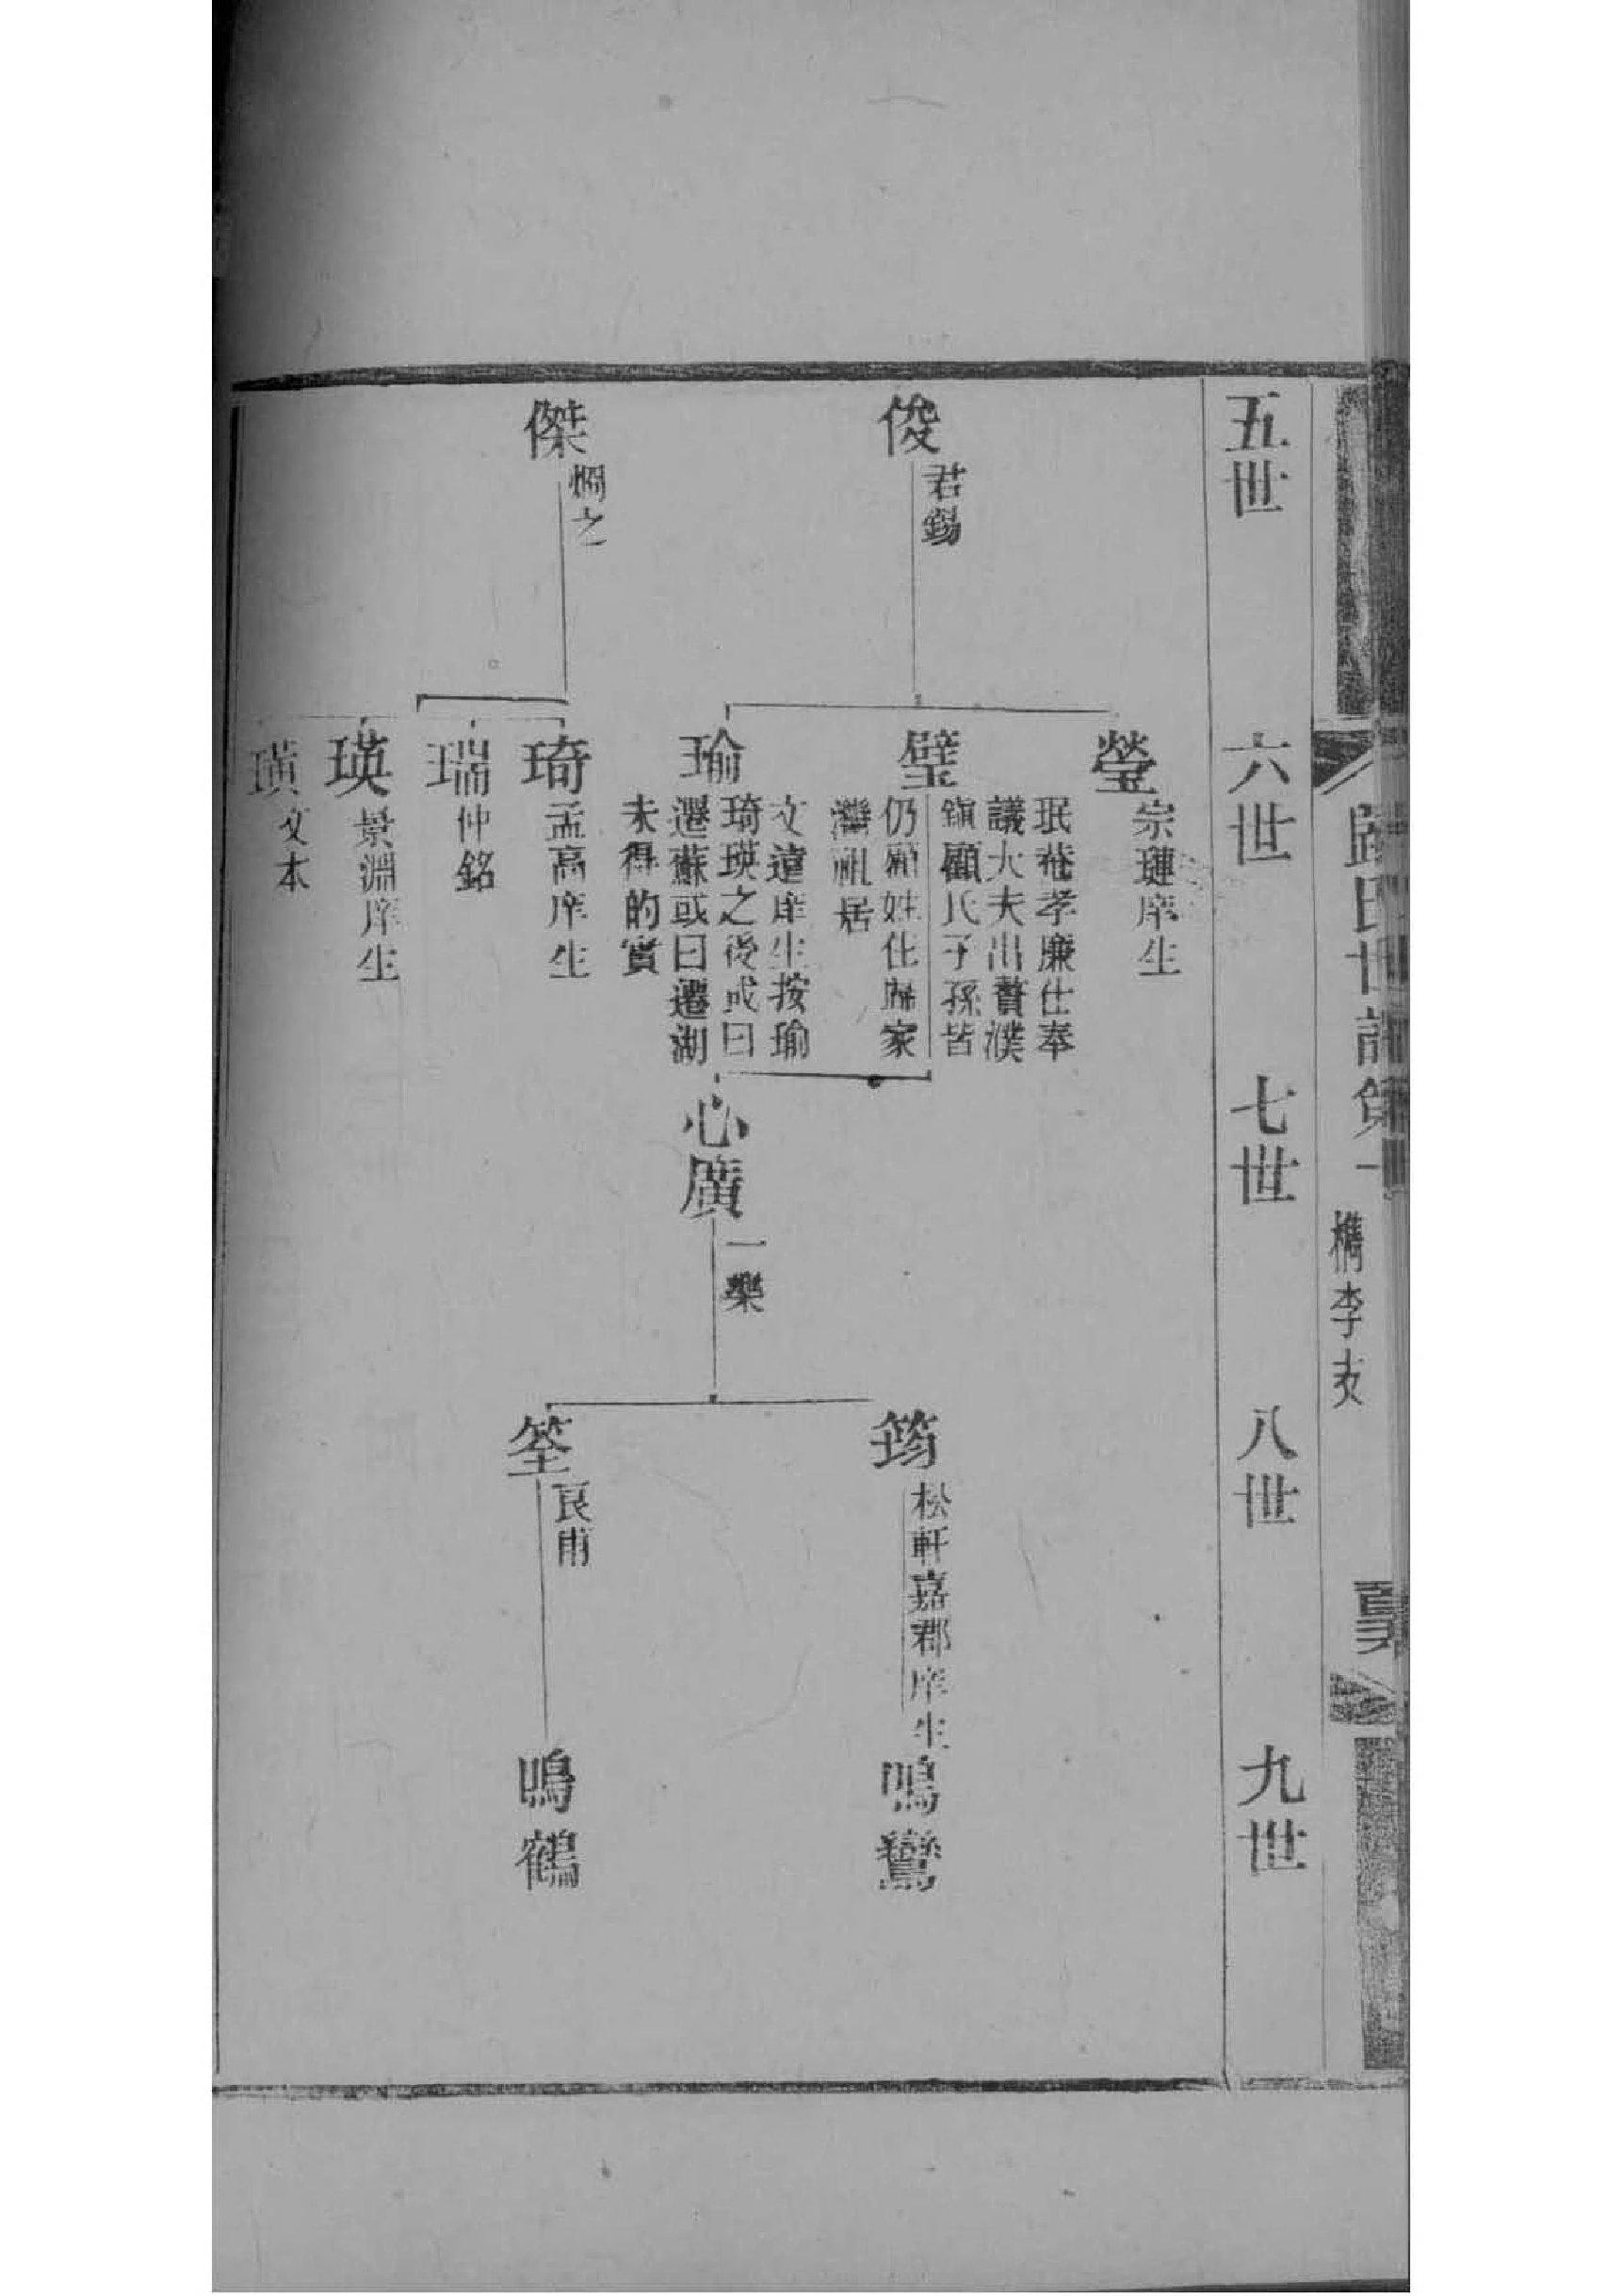 歸氏世譜第一
檇李支
五世
六世
七世
八世
九世
俊
君錫
傑
燗之
瑩
宗璉庠生
璧
珉菴孝廉仕奉
議大夫出贅濮
鎮顧氏子孫皆
仍顧姓住歸家
灣祖居
瑜
文遠庠生按瑜
琦瑛之後或曰
遷蘇或曰遷湖
未得的實
琦
孟高庠生
瑞
仲銘
瑛
景淵庠生
璜
文本
心廣
一樂
筠
松軒嘉郡庠生
筌
良甫
鳴鸞
鳴鶴